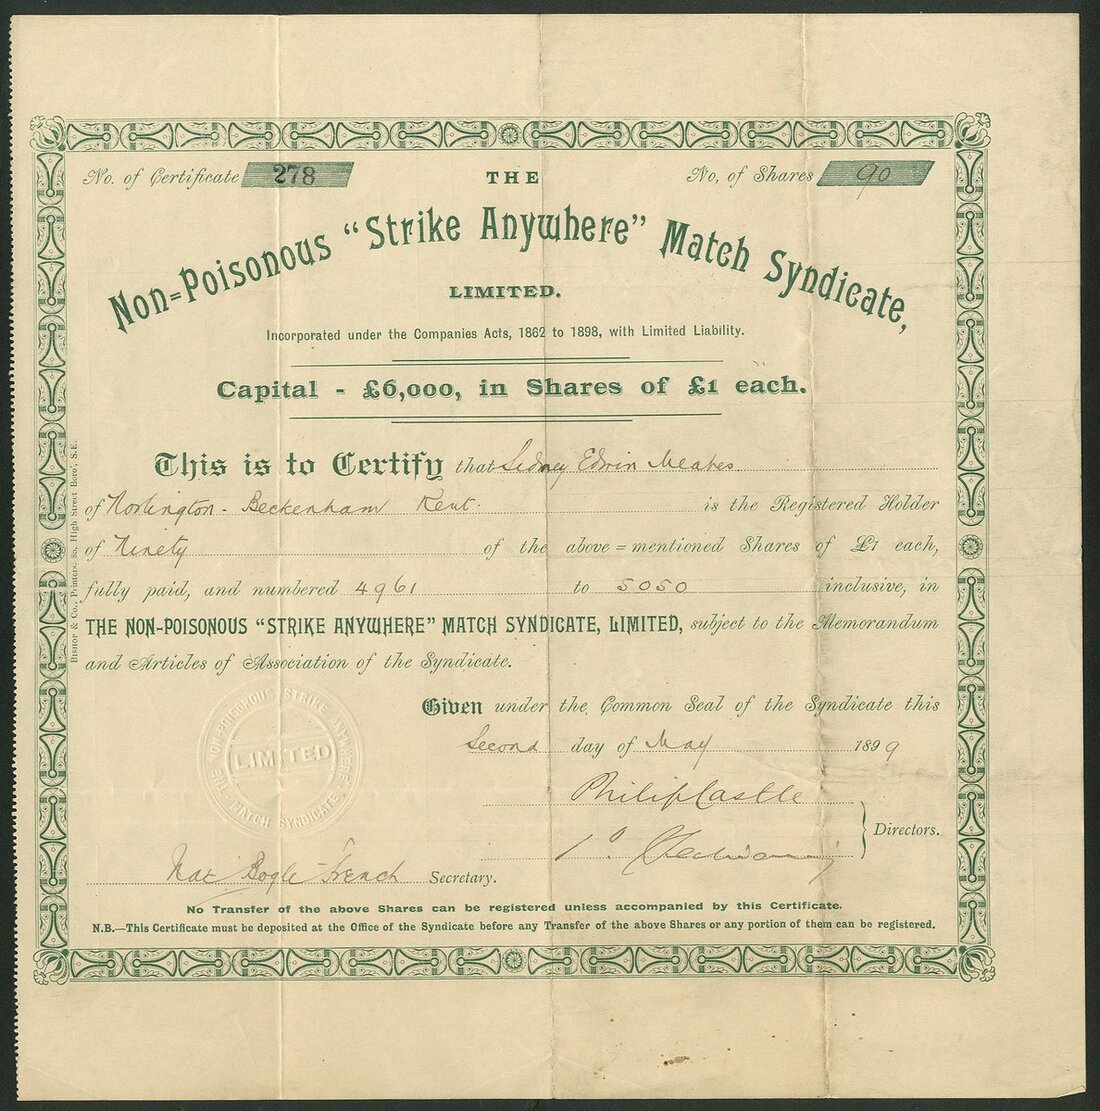 No. of Certificate 278
THE
No, of Shares 90
Non=Poisonous "Strike Anywhere" Match Syndicate,
LIMITED.
Incorporated under the Companies Acts, 1862 to 1898, with Limited Liability.
Capital - £6,000, in Shares of £1 each.
This is to Certify that Sidney Edwin Meakes
of Norlington - Beckenham Kent. is the Registered Holder
of Ninety of the above=mentioned Shares of £1 each,
fully paid, and numbered 4961 to 5050 inclusive, in
THE NON-POISONOUS "STRIKE ANYWHERE" MATCH SYNDICATE, LIMITED, subject to the Memorandum
and Articles of Association of the Syndicate.
Given under the Common Seal of the Syndicate this
Second day of May 1899
Philip Castle
Directors.
Nat Bogle-French Secretary.
No Transfer of the above Shares can be registered unless accompanied by this Certificate.
N.B.—This Certificate must be deposited at the Office of the Syndicate before any Transfer of the above Shares or any portion of them can be registered.
Bishop & Co., Printers, 80, High Street Boro', S.E.
THE NON-POISONOUS STRIKE ANYWHERE MATCH SYNDICATE
LIMITED